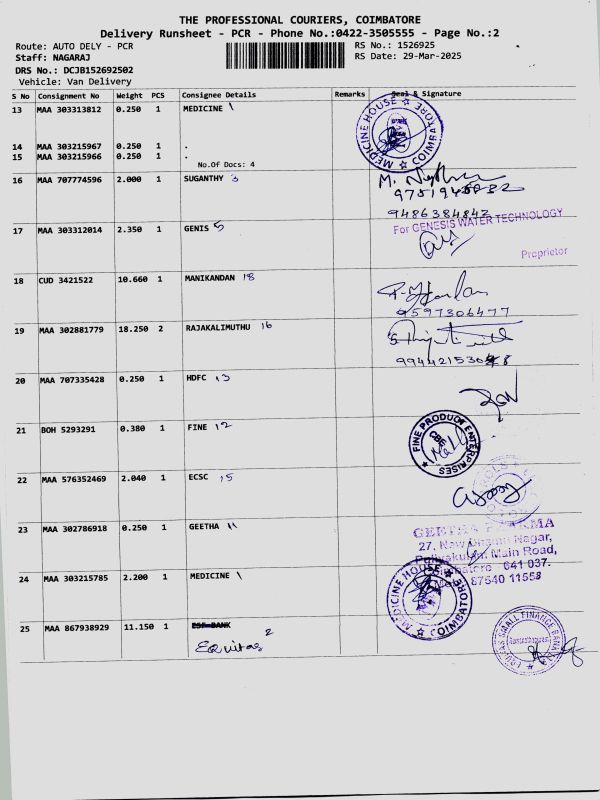 THE PROFESSIONAL COURIERS, COIMBATORE
Delivery Runsheet - PCR - Phone No.:0422-3505555 - Page No.:2
Route: AUTO DELY - PCR
RS No.: 1526925
Staff: NAGARAJ
RS Date: 29-Mar-2025
DRS No.: DCJB152692502
Vehicle: Van Delivery
S No Consignment No Weight PCS Consignee Details Remarks Seal & Signature
13 MAA 303313812 0.250 1 MEDICINE 1
MEDICINE HOUSE COIMBATORE
14 MAA 303215967 0.250 1 .
15 MAA 303215966 0.250 1 .
No.Of Docs: 4
16 MAA 707774596 2.000 1 SUGANTHY 3
9486384842
17 MAA 303312014 2.350 1 GENIS 5
For GENESIS WATER TECHNOLOGY
Proprietor
18 CUD 3421522 10.660 1 MANIKANDAN 18
9597306477
19 MAA 302881779 18.250 2 RAJAKALIMUTHU 16
20 MAA 707335428 0.250 1 HDFC 13
21 BOH 5293291 0.380 1 FINE 12
FINE PRODUCT ENTERPRISES
22 MAA 576352469 2.040 1 ECSC 15
23 MAA 302786918 0.250 1 GEETHA 11
GEETHA PHARMA
27, New Nagar,
Main Road,
641 037.
87540 11558
24 MAA 303215785 2.200 1 MEDICINE 1
MEDICINE HOUSE COIMBATORE
25 MAA 867938929 11.150 1 ESF BANK
Equitas 2
SMALL FINANCE BANK